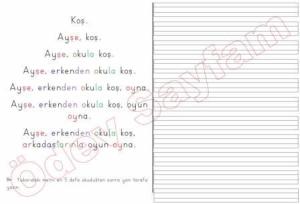 Koş.
Ayşe, koş.
Ayşe, okula koş.
Ayşe, erkenden okula koş.
Ayşe, erkenden okula koş, oyna.
Ayşe, erkenden okula koş, oyun
oyna.
Ayşe, erkenden okula koş,
arkadaşlarınla oyun oyna.
Yukarıdaki metni en 3 defa okuduktan sonra yan tarafa
yazın.
Ödev Sayfam